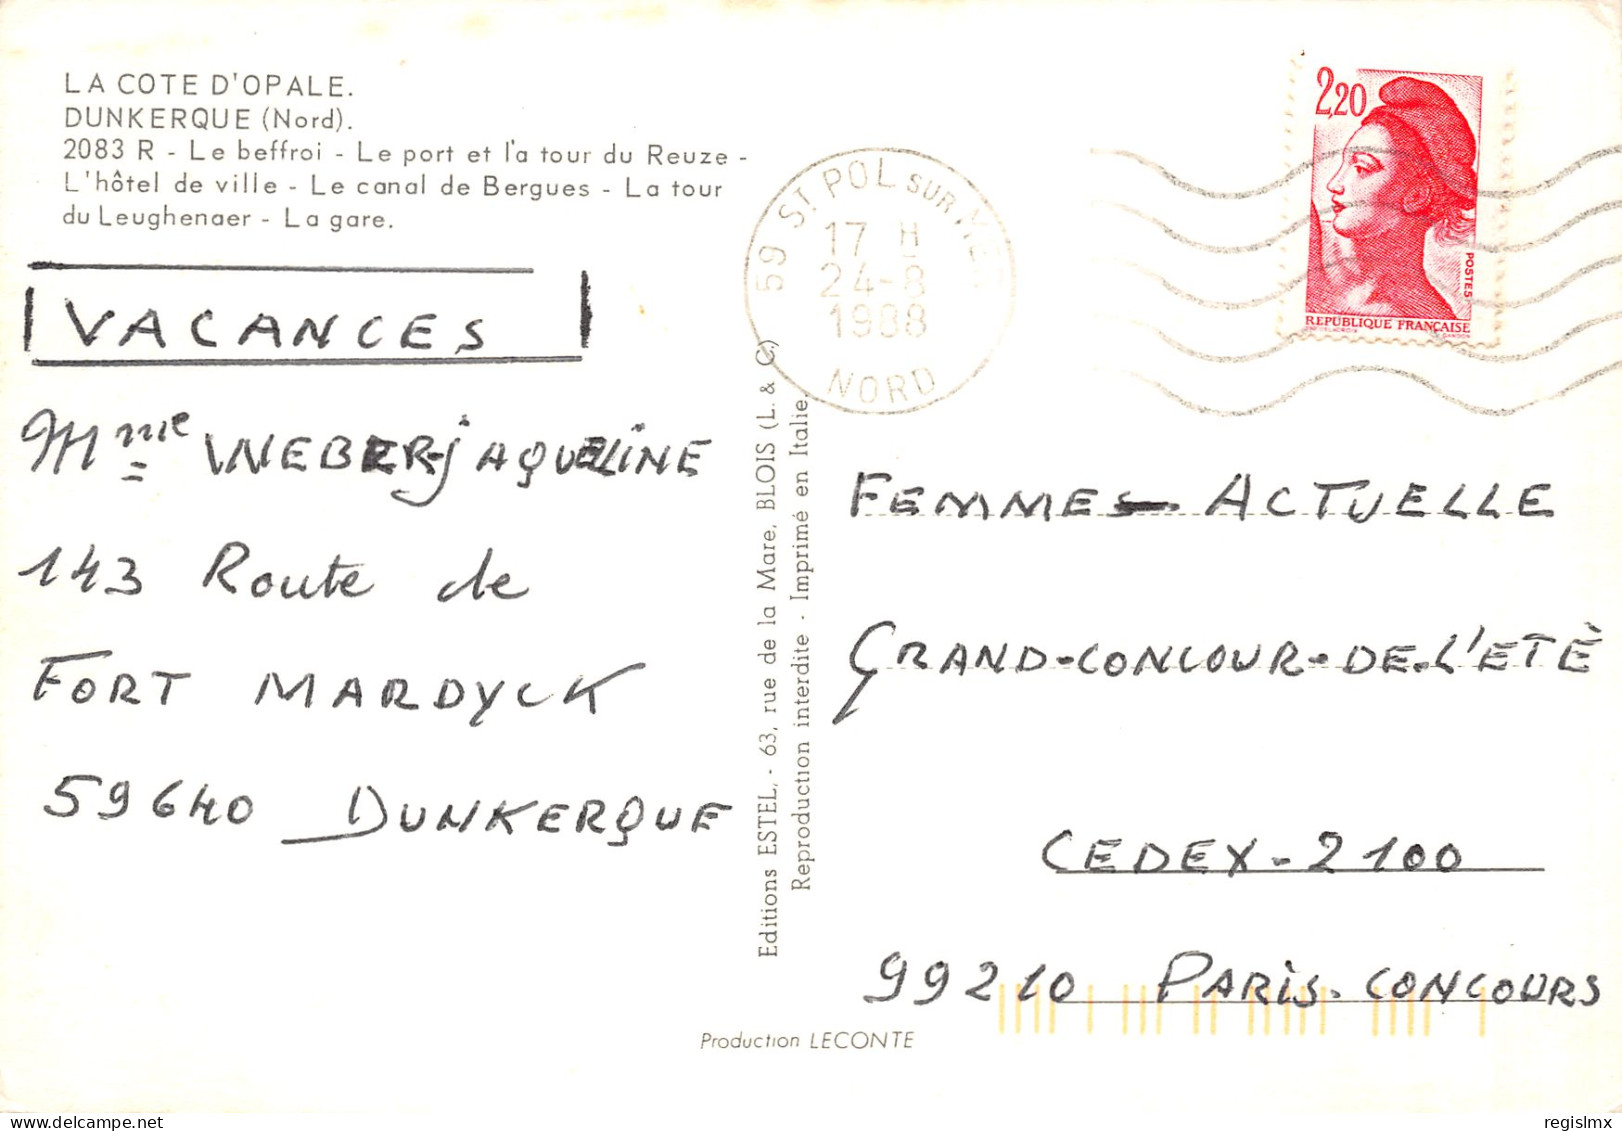 LA COTE D'OPALE.
DUNKERQUE (Nord).
2083 R - Le beffroi - Le port et l'a tour du Reuze -
L'hôtel de ville - Le canal de Bergues - La tour
du Leughenaer - La gare.
VACANCES
Mme WEBER-JAQUELINE
143 Route de
FORT MARDYCK
59640 DUNKERQUE
59 ST. POL SUR MER
17 H
24-8
1988
NORD
2,20
POSTES
REPUBLIQUE FRANÇAISE
Editions ESTEL. - 63, rue de la Mare, BLOIS (L. & C.)
Reproduction interdite - Imprimé en Italie.
FEMME - ACTUELLE
GRAND-CONCOUR-DE-L'ETÈ
CEDEX-2100
99210 PARIS-CONCOURS
Production LECONTE
delcampe.net
regislmx